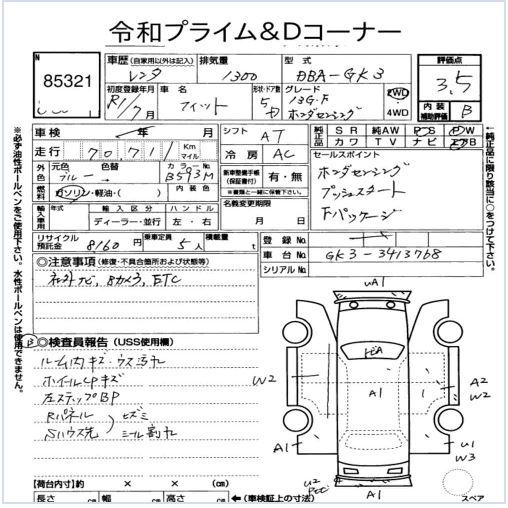 令和プライム&Dコーナー
N
85321
車歴 (自家用以外は記入) レンタ
排気量 1300
型式 DBA-GK3
評価点 3.5
内装補助評価 B
初度登録年月 R1/7月
車名 フィット
形状・ドア数 5
グレード 13G・F ホンダセンシング
2WD
4WD
車検 年 月
走行 70,711 Km マイル
シフト AT
冷房 AC
純正品 SR 純AW PS PW
カワ TV ナビ エアB
外色 元色 ブルー → 色替 カラーNo. B593M
燃料 ガソリン・軽油・( ) 内装色
新車整備手帳 (保証書付) 有・無
※書類と一緒に保管下さい。
セールスポイント
ホンダセンシング
プッシュスタート
Fパッケージ
輸入車用 年式 輸入区分 ハンドル
ディーラー・並行 左・右
名義変更期限 月 日
リサイクル預託金 8160円
乗車定員 5人
積載量 t
登録No.
車台No. GK3-3413768
シリアルNo.
◎注意事項 (修復・不具合箇所および状態等)
ナビ、Bカメラ、ETC
◎検査員報告 (USS使用欄)
ルーム内キズ・ウス汚れ
ホイールCPキズ
左ステップBP
Rパネル ヒズミ
シール割れ
uA1
W2
A1
A2
W2
A1
U1
W3
A1
【荷台内寸】約 × × (cm)
長さ cm 幅 cm 高さ cm ←(車検証上の寸法)
スペア
※必ず油性ボールペンをご使用下さい。水性ボールペンは使用できません。
←純正品に限り該当に○をつけて下さい。